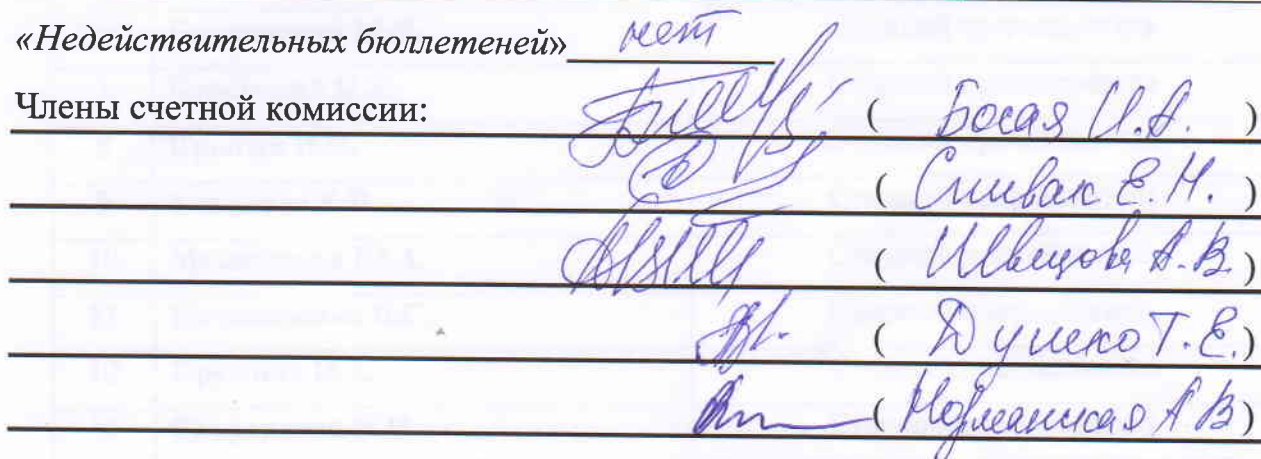 «Недействительных бюллетеней» нет
Члены счетной комиссии: ( Босая И.А. )
( Спивак Е.Н. )
( Швецова А.В. )
( Душко Т.Е. )
( А В )